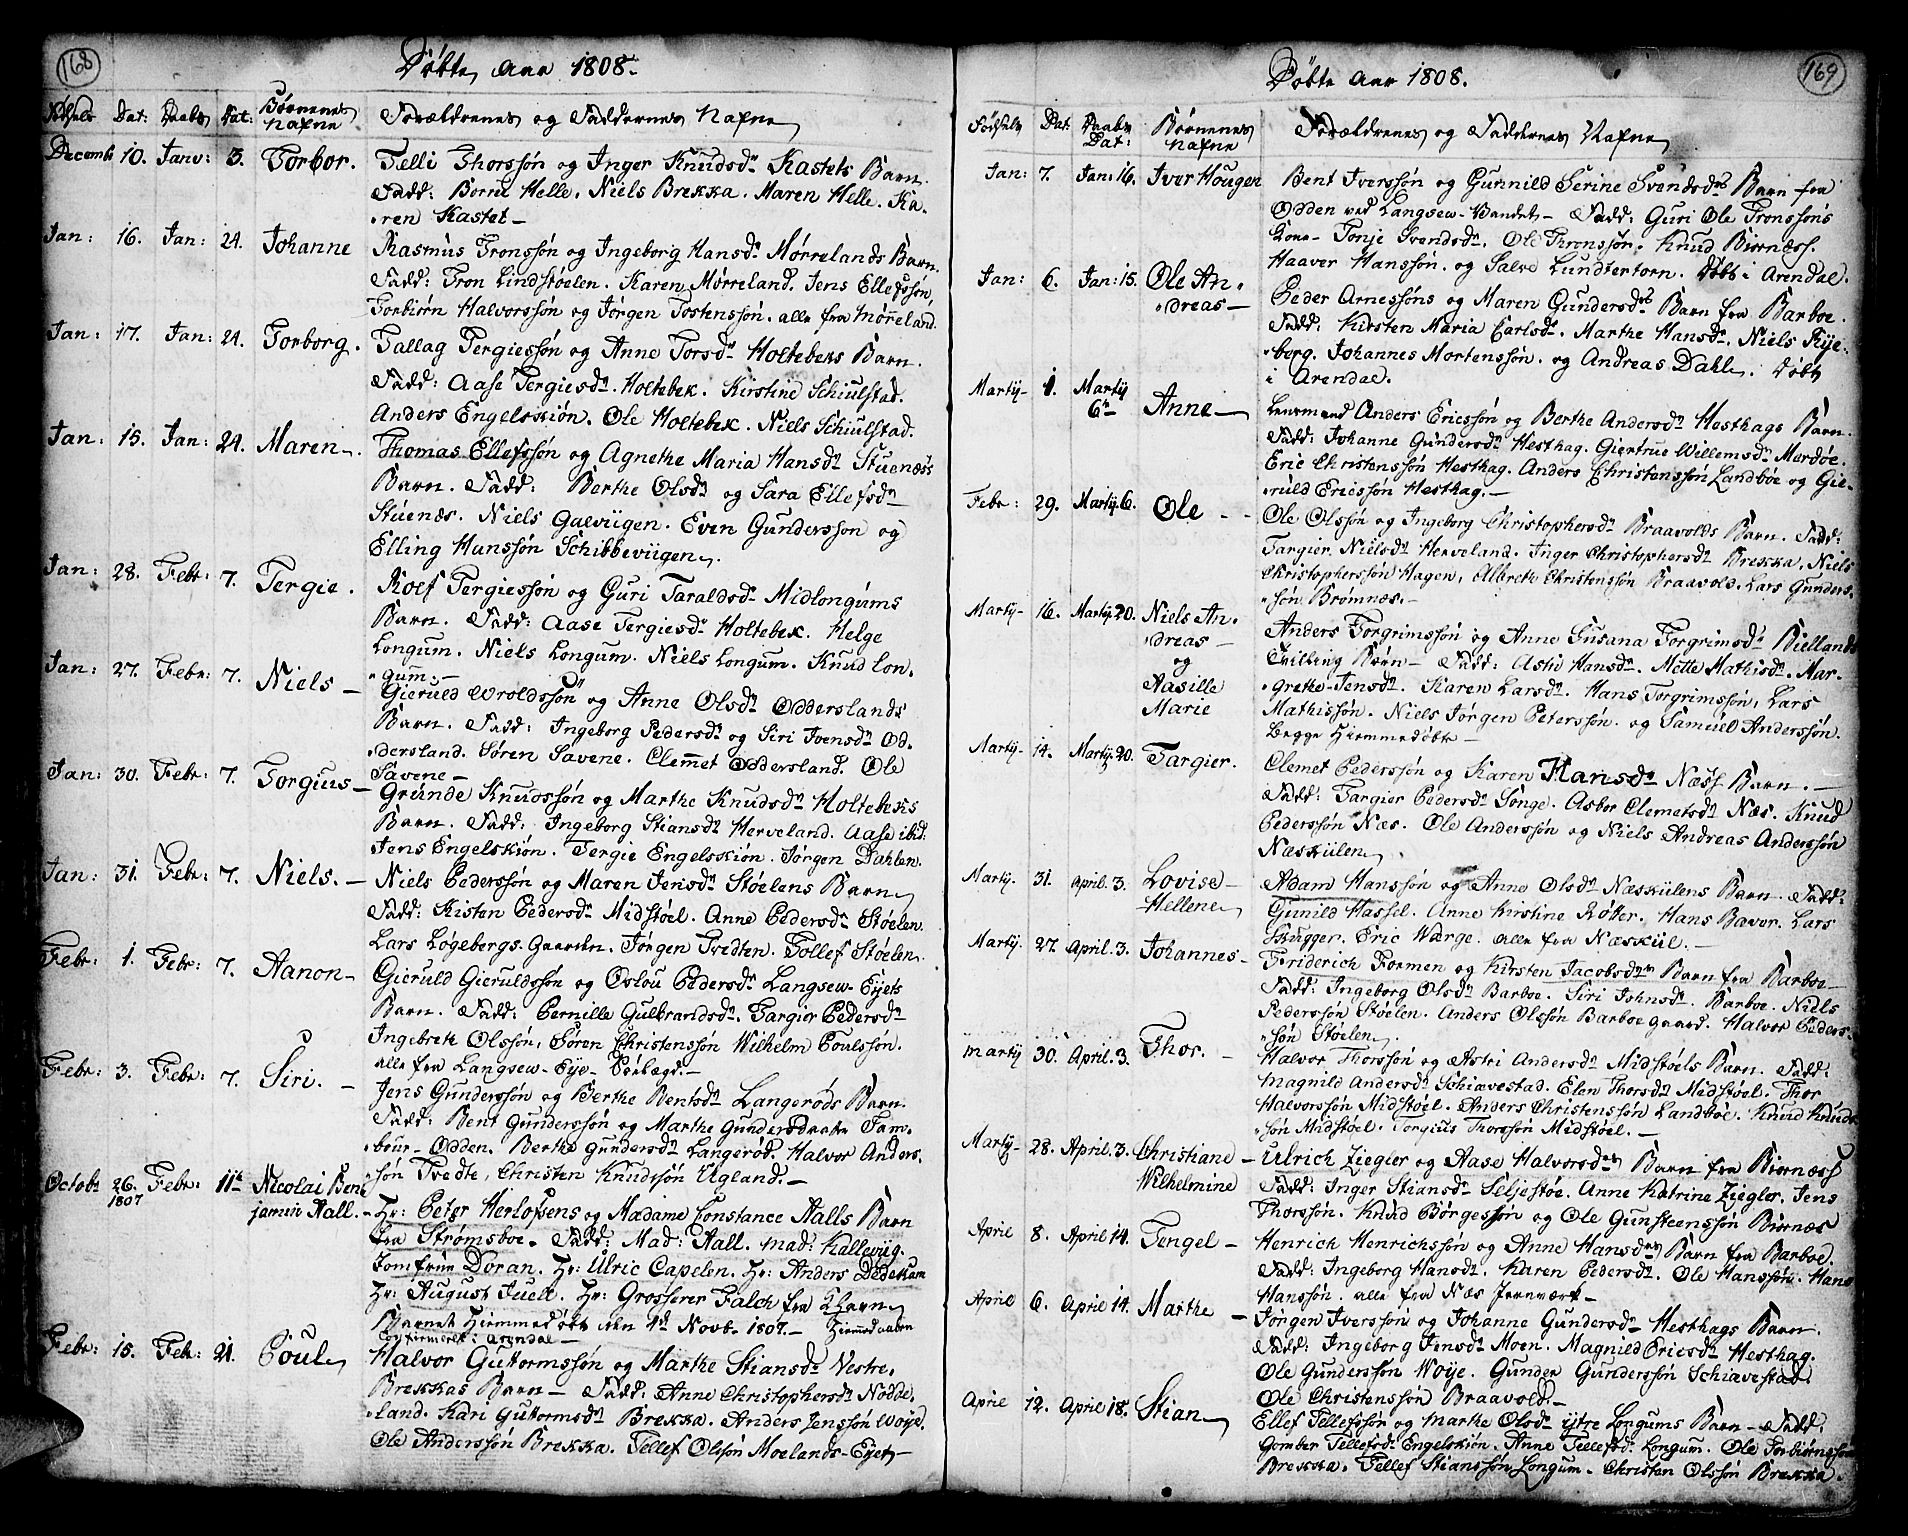 168
Døbte Aar 1808.
Fødsels Dat: Daabs Dat: Børnenes Nafne Forældrenes og Faddernes Nafne
Decemb: 10. Janv: 3. Torbor. Telli Thorssøn og Inger Knudsd. Kastets Barn.
Fadd: Borru Helle. Niels Brekka. Maren Helle. Ka-
ren Kastet
Jan: 16. Jan: 24. Johanne Rasmus Tronssøn og Ingeborg Hansd. Mørrelands Barn.
Fadd: Tron Lindstøelen. Karen Mørreland. Jens Ellefssøn,
Torbiørn Halvorssøn og Jørgen Tostenssøn. alle fra Mørreland.
Jan: 17. Jan: 24. Torborg. Tallag Tergiessøn og Anne Torsd. Holtebeks Barn.
Fadd: Aase Tergiesd. Holtebek. Kirstine Schiulstad.
Anders Engelskiøn. Ole Holtebek. Niels Schiulstad.
Jan: 15. Jan: 24. Maren. Thomas Ellefssøn og Agnethe Maria Hansd. Stuenæs
Barn. Fadd: Berthe Olsd. og Sara Ellefsd.
Stuenæs. Niels Galviigen. Even Gunderssøn og
Elling Hanssøn Schibbeviigen.
Jan: 28. Febr: 7. Tergie. Rolf Tergiessøn og Guri Taraldsd. Midlongums
Barn. Fadd: Aase Tergiesd. Holtebek. Helge
Longum. Niels Longum. Niels Longum. Knud Lon-
gum.
Jan: 27. Febr: 7. Niels Gieruld Wroldssøn og Anne Olsd. Odderslands
Barn. Fadd: Ingeborg Pedersd. og Siri Ivensd. Od-
dersland. Søren Savene. Clemet Oddersland. Ole
Savene
Jan: 30. Febr: 7. Torgius Gunde Knudssøn og Marthe Knudsd. Holtebeks
Barn. Fadd: Ingeborg Stiansd. Herveland. Aase ibid.
Jens Engelskiøn. Tergie Engelskiøn. Jørgen Dahlen.
Jan: 31. Febr: 7. Niels. Niels Pederssøn og Maren Jensd. Støelens Barn
Fadd: Kisten Pedersd. Midstøel. Anne Pedersd. Støelen.
Lars Løgebergs-Gaarden. Jørgen Tvedten. Tollef Støelen.
Febr: 1. Febr: 7. Aanon Gieruld Gieruldssøn og Oslou Pedersd. Langsew-Eyets
Barn. Fadd: Pernille Gulbrandsd. Targier Pedersd.
Ingebreth Olssøn, Søren Christenssøn Wilhelm Poulssøn.
alle fra Langsew-Eye-
Febr: 3. Febr: 7. Siri. Jens Gunderssøn og Berthe Bentsd. Langerøds Barn.
Fadd: Bent Gunderssøn og Marthe Gundersdaater Tam-
bour-Odden. Berthe Gundersd. Langerød. Halvor Anders-
søn Tvedte, Christen Knudssøn Ugland.
Octob: 26. 1807 Febr: 11te Nicolai Ben-
jamin Aall. Hr: Peter Herlofsens og Madame Constance Aalls Barn
fra Strømsboe. Fadd: Mad: Aall. Mad: Kalleviig.
Jomfrue Doran. Hr: Ulric Capelen. Hr: Anders Dedekam
Hr: August Juell. Hr: Grosserer Falch fra Khavn
Barnet Hiemmedøbt den 4de Novb. 1807. Hiemmedaaben
Confirmeret i Arendal
Febr: 15. Feb: 21. Poul Halvor Guttormssøn og Marthe Stiansd. Vestre-
Brekkas Barn. Fadd: Anne Christophersd. Nodde-
land. Kari Guttormsd. Brekka. Anders Jenssøn Woye.
Ole Anderssøn Brekka. Tellef Olssøn Moelands-Eyet
169
Døbte Aar 1808.
Fødsels Dat: Daabs Dat: Børnenes Nafne Forældrenes og Faddernes Nafne
Jan: 7. Jan: 16. Iver Hougen Bent Iverssøn og Gunnild Serine Svendsd. Barn fra
Odden ved Langsew-Vandet. Fadd: Guri Ole Tronssøns
Kone. Tonje Svendsd. Ole Thronssøn. Knud Biørnæss.
Haaver Hanssøn. og Salve Lundtertorn. Døbt i Arendal.
Jan: 6. Jan: 15. Ole An-
dreas Peder Arnessøns og Maren Gundersd. Barn fra Barboe.
Fadd: Kirsten Maria Carlsd. Marthe Hansd. Niels Rye-
berg. Johannes Mortenssøn. og Andreas Dahl. Døbt
i Arendal.
Martij 1. Martij 6te Anne Laurmand Anders Ericssøn og Berthe Andersd. Hesthags Barn.
Fadd: Johanne Gundersd. Hesthag. Giertrue Willemsd. Mardøe.
Eric Christenssøn Hesthag. Anders Christenssøn Landbøe og Gie-
ruld Ericssøn Hesthag.
Febr: 29. Martij 6. Ole Ole Olssøn og Ingeborg Christophersd. Braavolds Barn. Fadd:
Targier Nielsd. Herveland. Inger Christophersd. Brekka, Niels
Christopherssøn Hagen, Albreth Christenssøn Braavold. Lars Gunders-
søn Brømnæs.
Martij 16. Martij 20. Niels An-
dreas
og
Aasille
Marie Anders Torgrimssøn og Anne Susana Torgrimsd. Biellands
Tvilling Børn. Fadd: Astri Hansd. Mette Mathisd. Mar-
grethe Jensd. Karen Larsd. Hans Torgrimssøn, Lars
Mathissøn. Niels Jørgen Peterssøn. og Samuel Anderssøn.
Begge Hiemmedøbte
Martij 14. Martij 20. Targier. Clemet Pederssøn og Karen Hansd. Næss Barn.
Fadd: Targier Pedersd. Songe. Asbor Clemetsd. Næs. Knud
Pederssøn Næs. Ole Anderssøn og Niels Andreas Anderssøn
Næskiilen
Martij 31. April. 3. Lovise
Hellene Adam Hanssøn og Anne Olsd. Næskiilens Barn. Fadd:
Gunild Hassel. Anne Kirstine Røtter. Hans Bavor. Lars
Skugger. Eric Wærge. alle fra Næskiil.
Martij 27. April. 3. Johannes Friderich Formen og Kirsten Jacobsd. Barn fra Barboe
Fadd: Ingeborg Olsd. Barboe. Siri Johnsd. Barboe. Niels
Pederssøn Støelen. Anders Olssøn Barboe Gaard. Halvor Peders-
søn Støelen.
Martij 30. April. 3. Thor. Halvor Thorssøn og Astri Andersd. Midstøels Barn. Fadd:
Magnild Andersd. Schiævestad. Elen Thorsd. Midstøel. Thor
Halvorssøn Midstøel. Anders Christenssøn Landbøe. Knud Knuds-
søn Midstøel. Torgius Thorssøn Midstøel.
Martij 28. April. 3. Christiane
Wilhelmine Ulrich Ziegler og Aase Halvorsd. Barn fra Biørnæss
Fadd: Inger Stiansd. Seljestøe. Anne Katrine Ziegler. Jens
Thorssøn. Knud Børgessøn og Ole Gunsteenssøn Biørnæs
April 8. April 14. Tengel Henrich Henrichssøn og Anne Hansd. Barn fra Barboe.
Fadd: Ingeborg Hansd. Karen Pedersd. Ole Hanssøn. Hans
Hanssøn. alle fra Næs Jernværk
April 6. April 14. Marthe Jørgen Iverssøn og Johanne Gundersd. Hesthags Barn.
Fadd: Ingeborg Jensd. Moen. Magnild Ericsd. Hesthag.
Ole Gunderssøn Woye. Gunder Gunderssøn Schiævestad.
Ole Christenssøn Braavold.
April 12. April 18. Stian Ellef Tellefssøn og Marthe Olsd. Ytre Longums Barn. Fadd:
Gomber Tellefsd. Engelskiøn. Anne Tellefsd. Longum. Ole Torbiørnssøn
Brekka. Tellef Stianssøn Longum. Christen Olssøn Brekka.